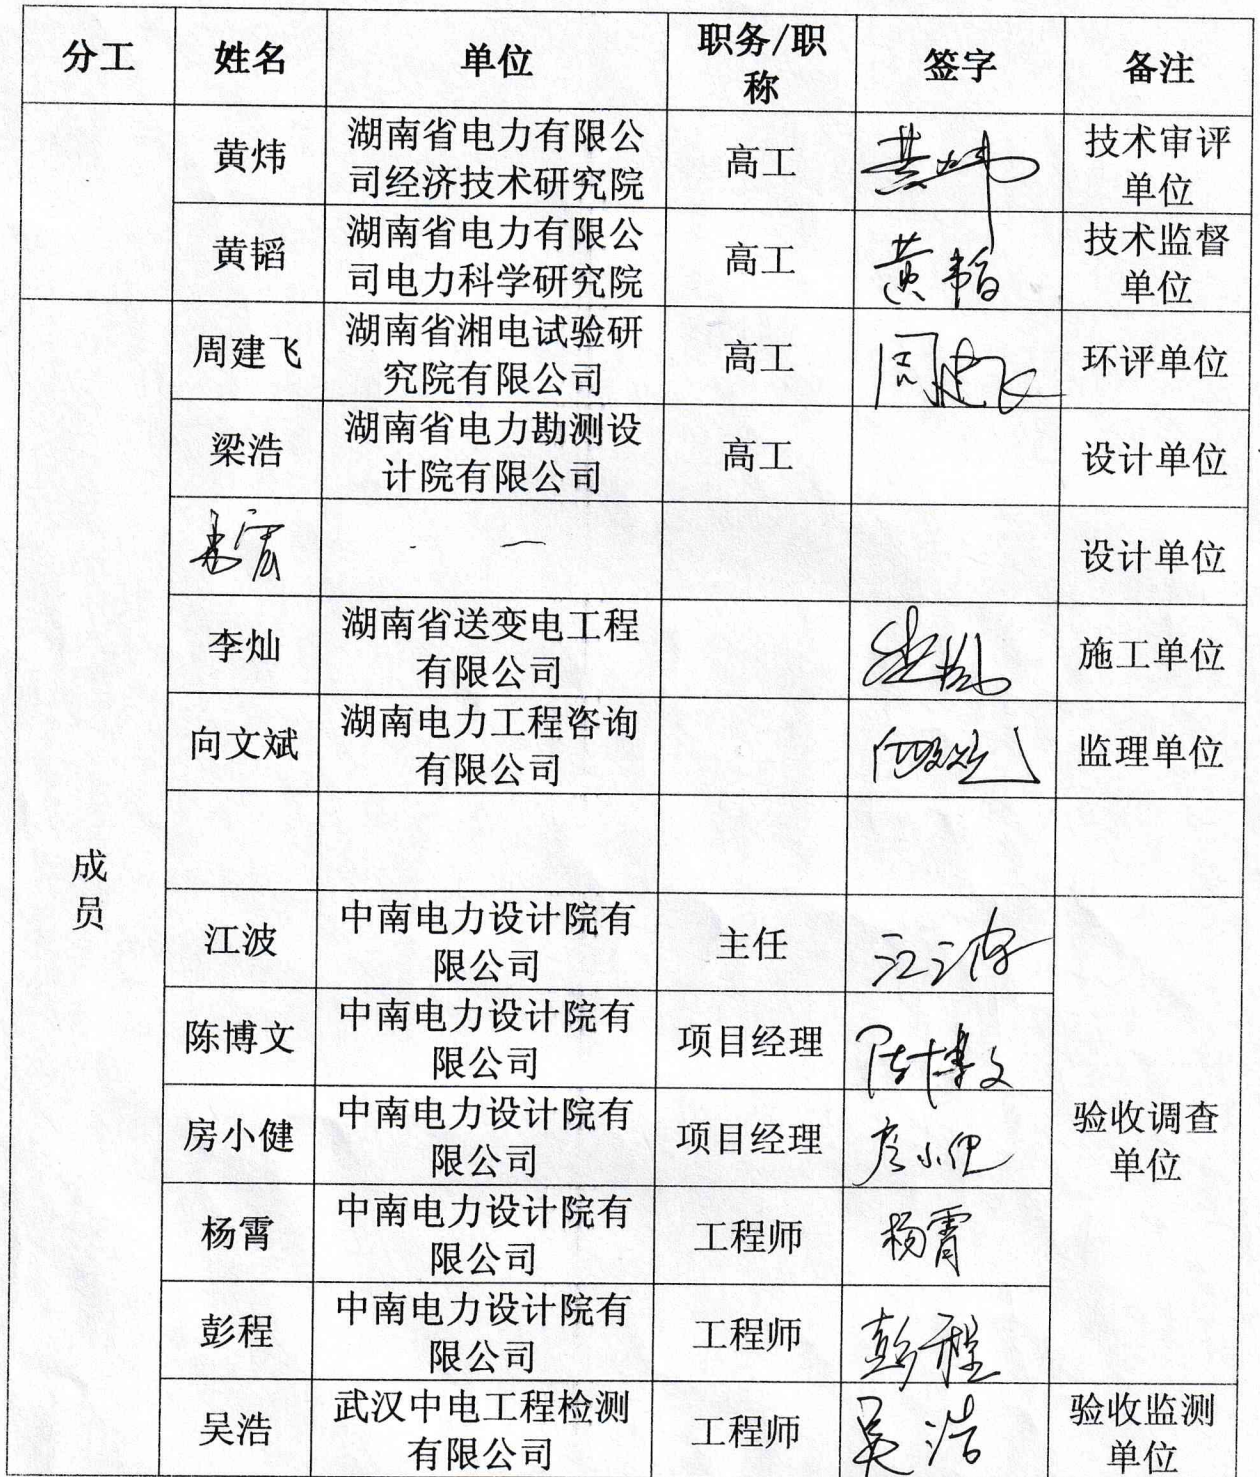 分工 姓名 单位 职务/职称 签字 备注
黄炜 湖南省电力有限公司经济技术研究院 高工 黄炜 技术审评单位
黄韬 湖南省电力有限公司电力科学研究院 高工 黄韬 技术监督单位
成员
周建飞 湖南省湘电试验研究院有限公司 高工 周建飞 环评单位
梁浩 湖南省电力勘测设计院有限公司 高工 设计单位
设计单位
李灿 湖南省送变电工程有限公司 施工单位
向文斌 湖南电力工程咨询有限公司 向文斌 监理单位
江波 中南电力设计院有限公司 主任 江波 验收调查单位
陈博文 中南电力设计院有限公司 项目经理 陈博文
房小健 中南电力设计院有限公司 项目经理 房小健
杨霄 中南电力设计院有限公司 工程师 杨霄
彭程 中南电力设计院有限公司 工程师 彭程
吴浩 武汉中电工程检测有限公司 工程师 吴浩 验收监测单位